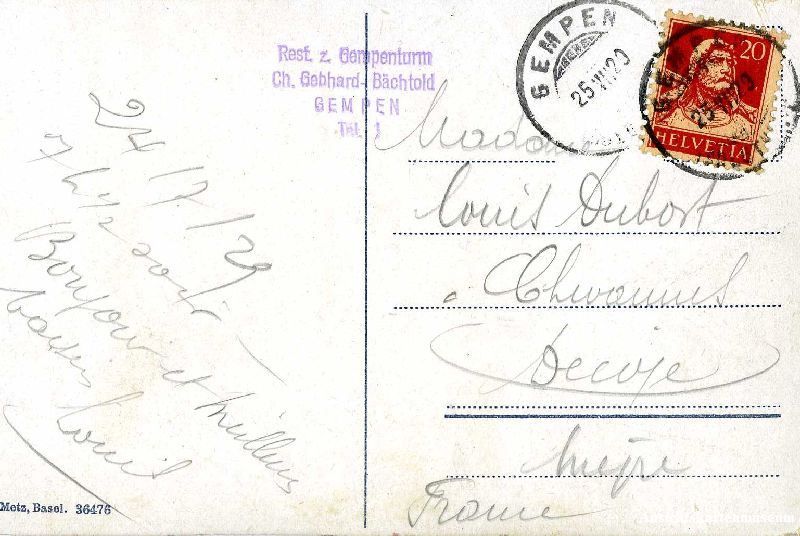 Rest. z. Gempenturm
Ch. Gebhard-Bächtold
GEMPEN
Tel. 1
GEMPEN
25.VII.29
20
HELVETIA
24/7/29
7 h 1/2 soir
Bonjour et milliers
baisers
Louis
Madame
Louis Dubost
Chevannes
France
Metz, Basel. 36476